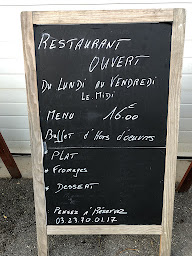 RESTAURANT
OUVERT
DU LUNDI AU VENDREDI
LE MIDI
MENU 16.00€
Buffet d'Hors d'oeuvres
* PLAT
* Fromages
* DESSERT
PENSEZ A RÉSERVEZ
03.23.70.01.17